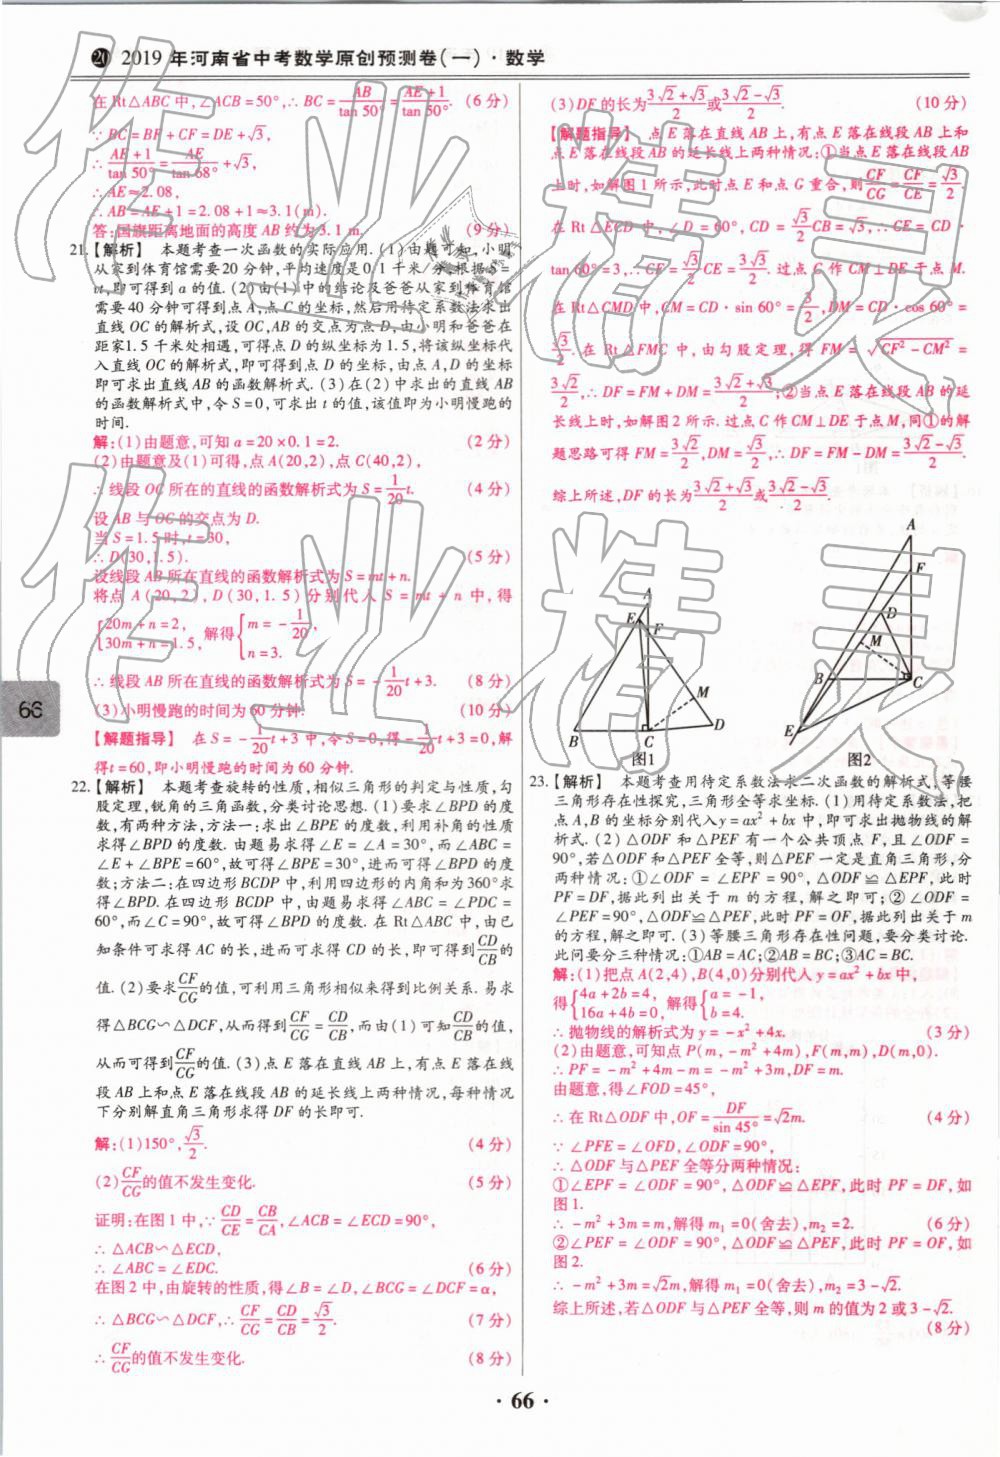 ⑳ 2019年河南省中考数学原创预测卷(一)·数学
在Rt△ABC中,∠ACB=50°,∴BC=AB/tan 50°=(AE+1)/tan 50°. (6分)
∵BC=BF+CF=DE+√3,
∴(AE+1)/tan 50°=AE/tan 68°+√3,
∴AE≈2.08,
∴AB=AE+1=2.08+1≈3.1(m).
答:国旗距离地面的高度AB约为3.1 m. (9分)
21.【解析】 本题考查一次函数的实际应用.(1)由题可知,小明
从家到体育馆需要20分钟,平均速度是0.1千米/分,根据S=
vt,即可得到a的值.(2)由(1)中的结论及爸爸从家到体育馆
需要40分钟可得到点A,点C的坐标,然后用待定系数法求出
直线OC的解析式,设OC,AB的交点为点D,由小明和爸爸在
距家1.5千米处相遇,可得点D的纵坐标为1.5,将该纵坐标代
入直线OC的解析式,即可得到点D的坐标,由点A,D的坐标
即可求出直线AB的函数解析式.(3)在(2)中求出的直线AB
的函数解析式中,令S=0,可求出t的值,该值即为小明慢跑的
时间.
解:(1)由题意,可知a=20×0.1=2. (2分)
(2)由题意及(1)可得,点A(20,2),点C(40,2),
∴线段OC所在的直线的函数解析式为S=1/20 t. (4分)
设AB与OC的交点为D.
当S=1.5时,t=30,
∴D(30,1.5). (5分)
设线段AB所在直线的函数解析式为S=mt+n.
将点A(20,2),D(30,1.5)分别代入S=mt+n中,得
{20m+n=2, 30m+n=1.5, 解得{m=-1/20, n=3.
∴线段AB所在直线的函数解析式为S=-1/20 t+3. (8分)
(3)小明慢跑的时间为60分钟. (10分)
【解题指导】 在S=-1/20 t+3中,令S=0,得-1/20 t+3=0,解
得t=60,即小明慢跑的时间为60分钟.
22.【解析】 本题考查旋转的性质,相似三角形的判定与性质,勾
股定理,锐角的三角函数,分类讨论思想.(1)要求∠BPD的度
数,有两种方法,方法一:求出∠BPE的度数,利用补角的性质
求得∠BPD的度数.由题易求得∠E=∠A=30°,而∠ABC=
∠E+∠BPE=60°,故可得∠BPE=30°,进而可得∠BPD的度
数;方法二:在四边形BCDP中,利用四边形的内角和为360°求
得∠BPD.在四边形BCDP中,由题易求得∠ABC=∠PDC=
60°,而∠C=90°,故可得∠BPD的度数.在Rt△ABC中,由已
知条件可求得AC的长,进而可求得CD的长,即可得到CD/CB的
值.(2)要求CF/CG的值,可利用三角形相似来得到比例关系.易求
得△BCG∽△DCF,从而得到CF/CG=CD/CB,而由(1)可知CD/CB的值,
从而可得到CF/CG的值.(3)点E落在直线AB上,有点E落在线
段AB上和点E落在线段AB的延长线上两种情况,每种情况
下分别解直角三角形求得DF的长即可.
解:(1)150°,√3/2. (4分)
(2)CF/CG的值不发生变化. (5分)
证明:在图1中,∵CD/CE=CB/CA,∠ACB=∠ECD=90°,
∴△ACB∽△ECD,
∴∠ABC=∠EDC. (6分)
在图2中,由旋转的性质,得∠B=∠D,∠BCG=∠DCF=α,
∴△BCG∽△DCF,∴CF/CG=CD/CB=√3/2. (7分)
∴CF/CG的值不发生变化. (8分)
(3)DF的长为(3√2+√3)/2或(3√2-√3)/2. (10分)
【解题指导】 点E落在直线AB上,有点E落在线段AB上和
点E落在线段AB的延长线上两种情况:①当点E落在线段AB
上时,如解图1所示,此时点E和点G重合,则CF/CG=CF/CE=√3/2.
在Rt△ECD中,∠D=60°,CD=√3/2CB=√3,∴CE=CD·
tan 60°=3,∴CF=√3/2CE=3√3/2.过点C作CM⊥DE于点M.
在Rt△CMD中,CM=CD·sin 60°=3/2,DM=CD·cos 60°=
√3/2.在Rt△FMC中,由勾股定理,得FM=√(CF²-CM²)=
3√2/2,∴DF=FM+DM=(3√2+√3)/2;②当点E落在线段AB的延
长线上时,如解图2所示.过点C作CM⊥DE于点M,同①的解
题思路可得FM=3√2/2,DM=√3/2,∴DF=FM-DM=(3√2-√3)/2.
综上所述,DF的长为(3√2+√3)/2或(3√2-√3)/2.
A
E
F
M
B
C
D
图1
A
F
D
M
B
C
E
图2
23.【解析】 本题考查用待定系数法求二次函数的解析式,等腰
三角形存在性探究,三角形全等求坐标.(1)用待定系数法,把
点A,B的坐标分别代入y=ax²+bx中,即可求出抛物线的解
析式.(2)△ODF和△PEF有一个公共顶点F,且∠ODF=
90°,若△ODF和△PEF全等,则△PEF一定是直角三角形,分
两种情况:①∠ODF=∠EPF=90°,△ODF≌△EPF,此时
PF=DF,据此列出关于m的方程,解之即可;②∠ODF=
∠PEF=90°,△ODF≌△PEF,此时PF=OF,据此列出关于m
的方程,解之即可.(3)等腰三角形存在性问题,要分类讨论.
此问要分三种情况:①AB=AC;②AB=BC;③AC=BC.
解:(1)把点A(2,4),B(4,0)分别代入y=ax²+bx中,
得{4a+2b=4, 16a+4b=0, 解得{a=-1, b=4.
∴抛物线的解析式为y=-x²+4x. (3分)
(2)由题意,可知点P(m,-m²+4m),F(m,m),D(m,0).
∴PF=-m²+4m-m=-m²+3m,DF=m.
由题意,得∠FOD=45°,
∴在Rt△ODF中,OF=DF/sin 45°=√2m. (4分)
∵∠PFE=∠OFD,∠ODF=90°,
∴△ODF与△PEF全等分两种情况:
①∠EPF=∠ODF=90°,△ODF≌△EPF,此时PF=DF,如
图1.
∴-m²+3m=m,解得m₁=0(舍去),m₂=2. (6分)
②∠PEF=∠ODF=90°,△ODF≌△PEF,此时PF=OF,如
图2.
∴-m²+3m=√2m,解得m₁=0(舍去),m₂=3-√2.
综上所述,若△ODF与△PEF全等,则m的值为2或3-√2.
(8分)
66
·66·
作业精灵
作业精灵